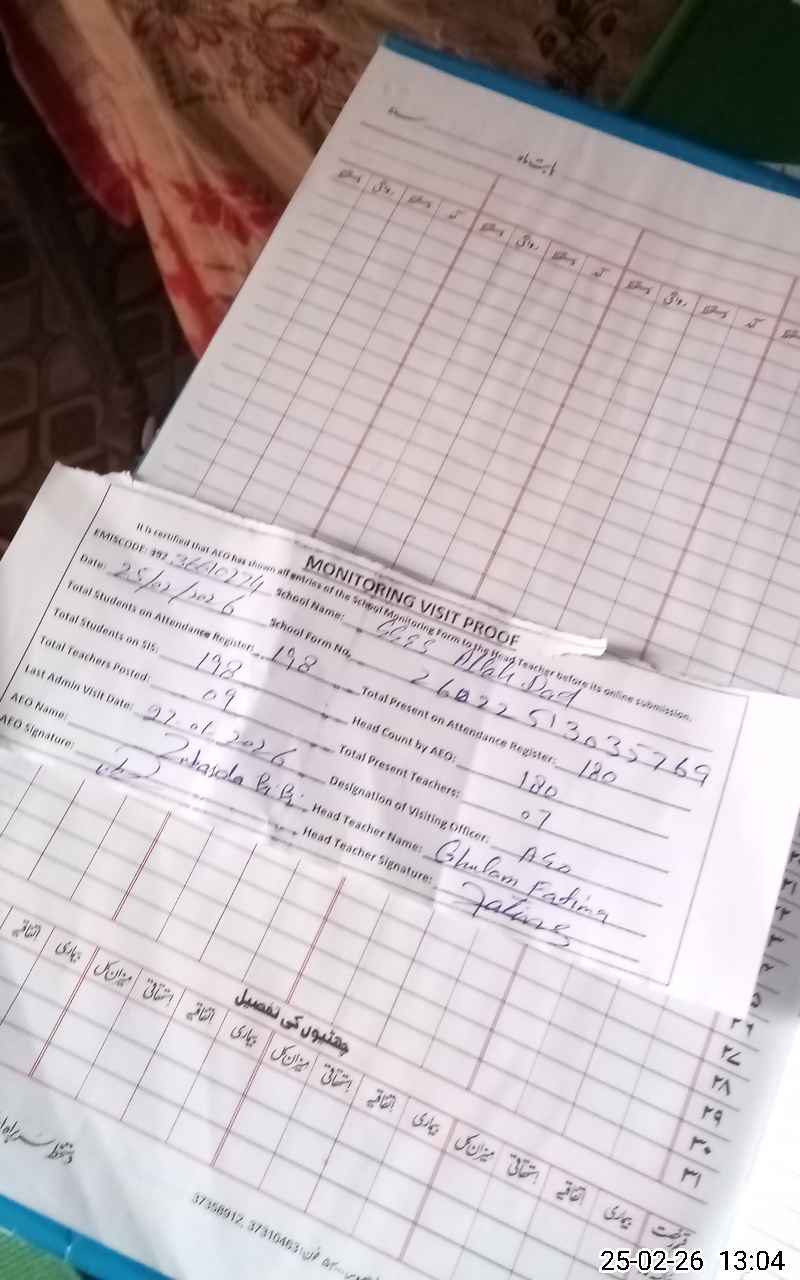 بابت ماہ
MONITORING VISIT PROOF
It is certified that AEO has shown all entries of the School Monitoring Form to the Head Teacher before its online submission.
EMISCODE: School Name: GGES Allah Dad
Date: 25/02/2026 School Form No. 26022513035769
Total Students on Attendance Register: 198 Total Present on Attendance Register: 180
Total Students on SIS: 198 Head Count by AEO: 180
Total Teachers Posted: 09 Total Present Teachers: 07
Last Admin Visit Date: 27.01.2026 Designation of Visiting Officer: AEO
AEO Name: Bi Bi Head Teacher Name: Ghulam Fatima
AEO Signature: Head Teacher Signature: Fatima
۲۶
۲۷
۲۸
۲۹
۳۰
۳۱
چھٹیوں کی تفصیل
اتفاقیہ بیماری میزان کل استحقاقی اتفاقیہ بیماری میزان کل استحقاقی اتفاقیہ بیماری میزان کل استحقاقی اتفاقیہ بیماری
37358912, 37310463 فون:
25-02-26 13:04